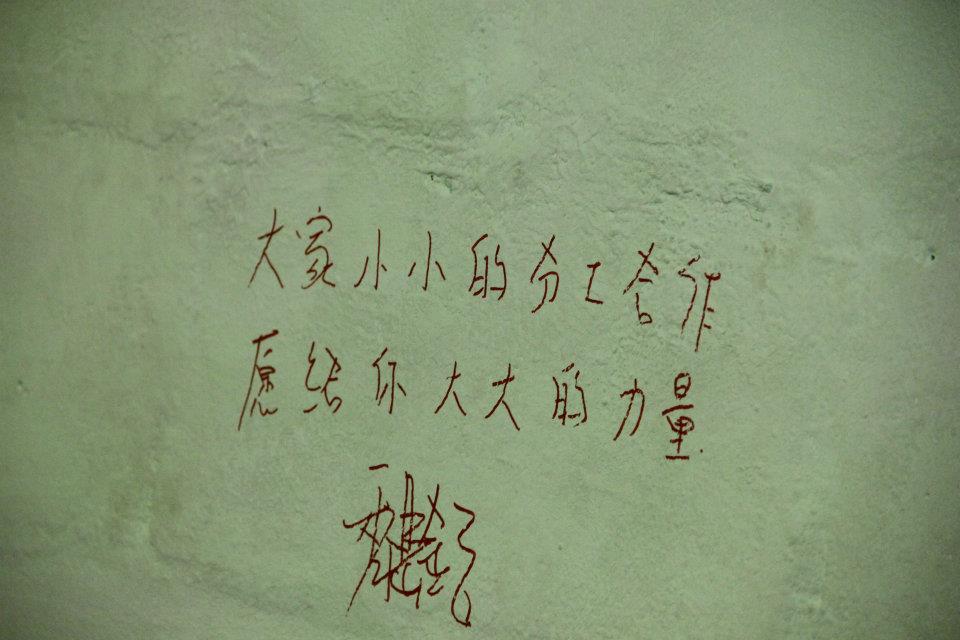 大家小小的分工合作
愿结你大大的力量